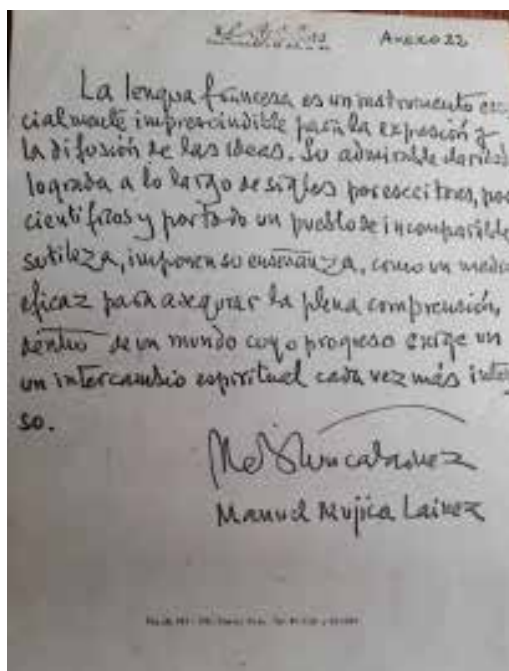 Anexo 22
La lengua francesa es un instrumento esen
cialmente imprescindible para la expresión y
la difusión de las ideas. Su admirable claridad
lograda a lo largo de siglos por escritores, por
científicos y por todo un pueblo de incomparable
sutileza, imponen su enseñanza, como un medio
eficaz para asegurar la plena comprensión,
dentro de un mundo cuyo progreso exige un
un intercambio espiritual cada vez más inten
so.
Manuel Mujica Lainez